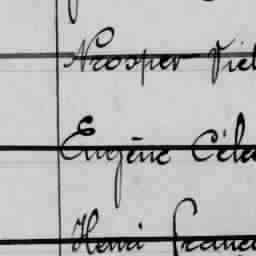 Prosper Viel
Eugène Céle
Henri Franc